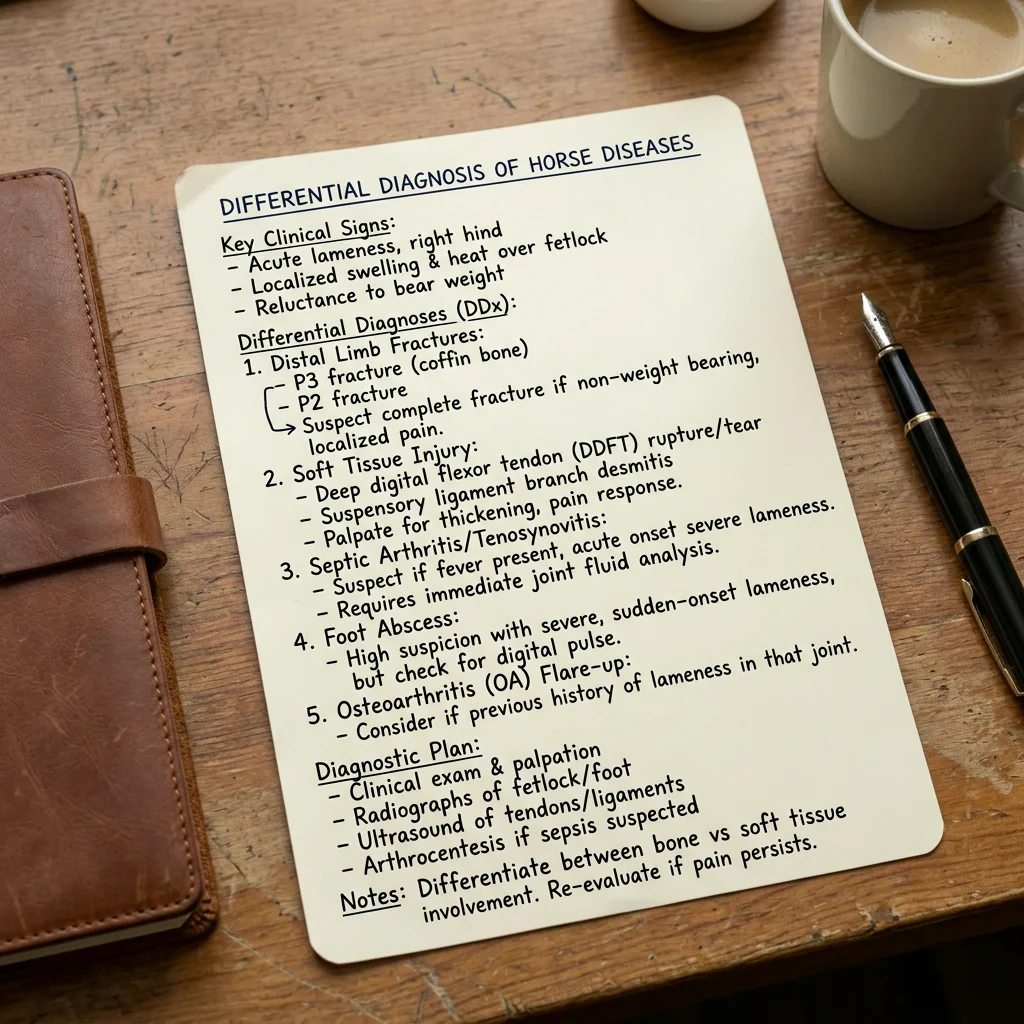 DIFFERENTIAL DIAGNOSIS OF HORSE DISEASES
Key Clinical Signs:
- Acute lameness, right hind
- Localized swelling & heat over fetlock
- Reluctance to bear weight
Differential Diagnoses (DDx):
1. Distal Limb Fractures:
- P3 fracture (coffin bone)
- P2 fracture
→ Suspect complete fracture if non-weight bearing,
localized pain.
2. Soft Tissue Injury:
- Deep digital flexor tendon (DDFT) rupture/tear
- Suspensory ligament branch desmitis
- Palpate for thickening, pain response.
3. Septic Arthritis/Tenosynovitis:
- Suspect if fever present, acute onset severe lameness.
- Requires immediate joint fluid analysis.
4. Foot Abscess:
- High suspicion with severe, sudden-onset lameness,
but check for digital pulse.
5. Osteoarthritis (OA) Flare-up:
- Consider if previous history of lameness in that joint.
Diagnostic Plan:
- Clinical exam & palpation
- Radiographs of fetlock/foot
- Ultrasound of tendons/ligaments
- Arthrocentesis if sepsis suspected
Notes: Differentiate between bone vs soft tissue
involvement. Re-evaluate if pain persists.